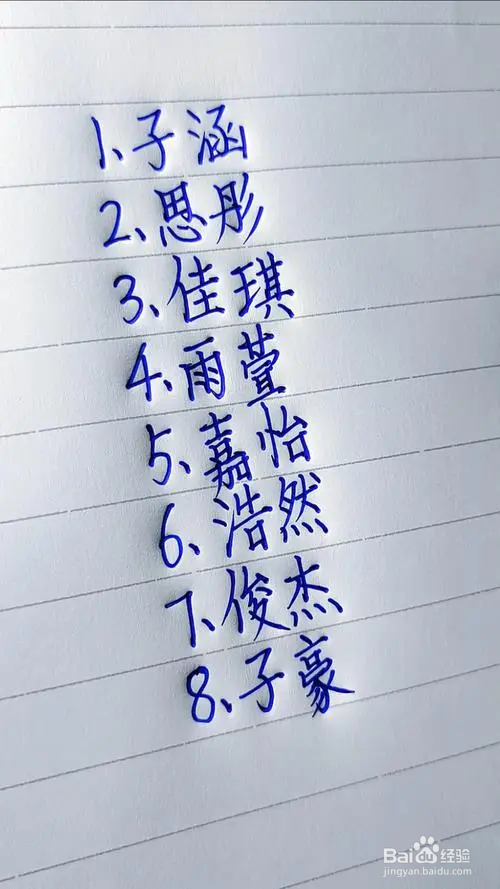 1、子涵
2、思彤
3、佳琪
4、雨萱
5、嘉怡
6、浩然
7、俊杰
8、子豪
Baidu经验
jingyan.baidu.com